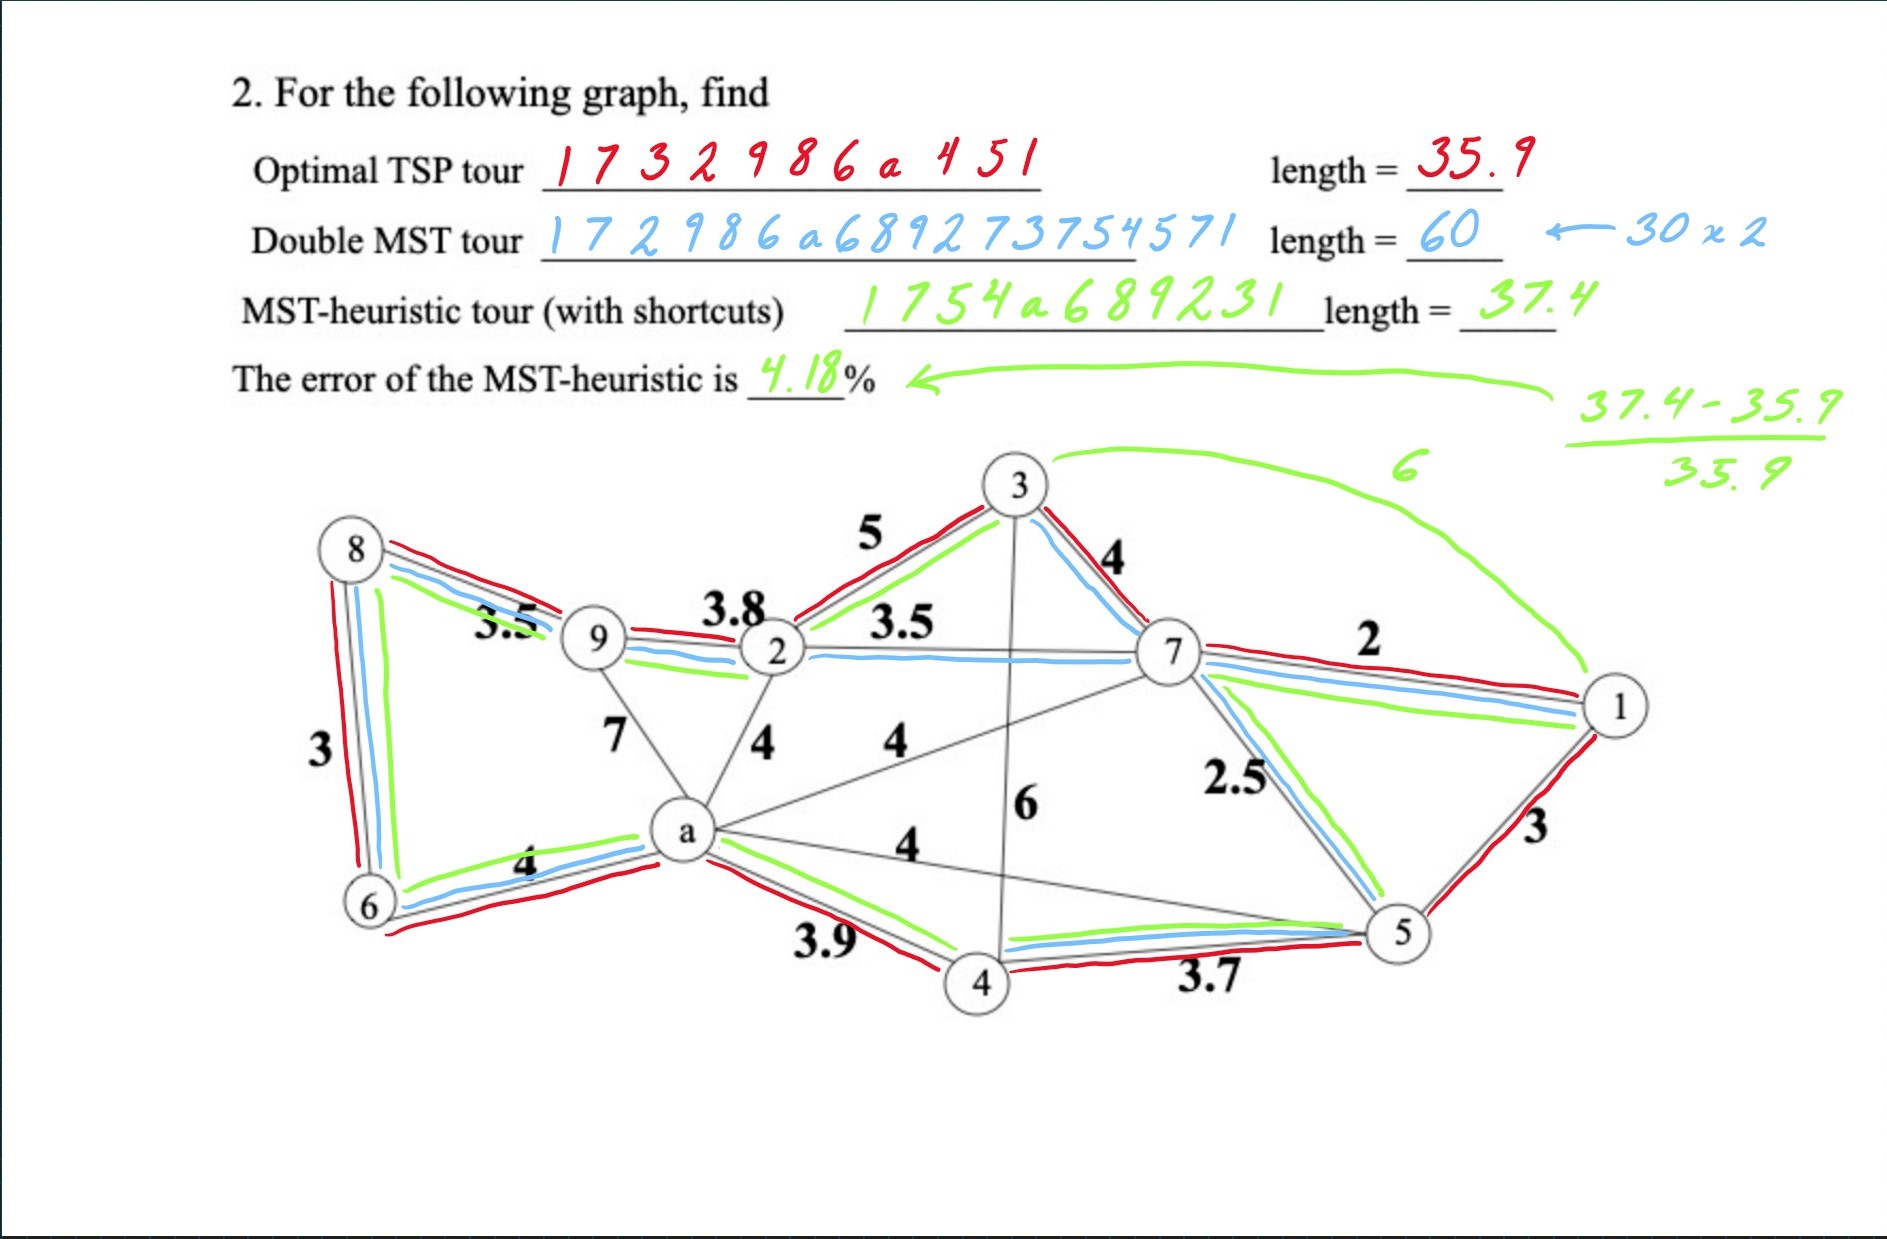 2. For the following graph, find
Optimal TSP tour 1 7 3 2 9 8 6 a 4 5 1 length = 35.9
Double MST tour 1 7 2 9 8 6 a 6 8 9 2 7 3 7 5 4 5 7 1 length = 60 ← 30 x 2
MST-heuristic tour (with shortcuts) 1 7 5 4 a 6 8 9 2 3 1 length = 37.4
The error of the MST-heuristic is 4.18%
37.4 - 35.9
35.9
3
6
8
5
4
3.5
9
3.8
2
3.5
7
2
1
3
7
4
4
6
2.5
3
a
4
4
6
3.9
4
3.7
5